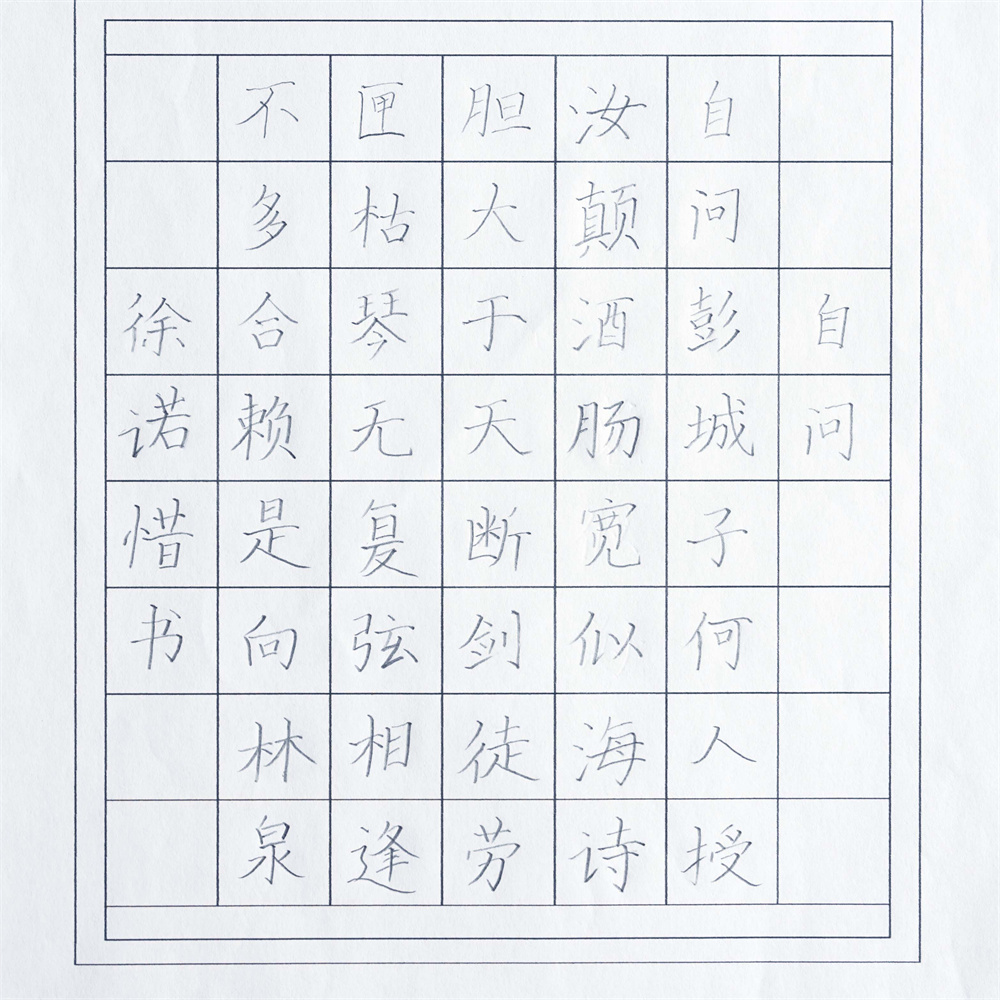 自问
自问彭城子何人授
汝颠酒肠宽似海诗
胆大于天断剑徒劳
匣枯琴无复弦相逢
不多合赖是向林泉
徐诺惜书